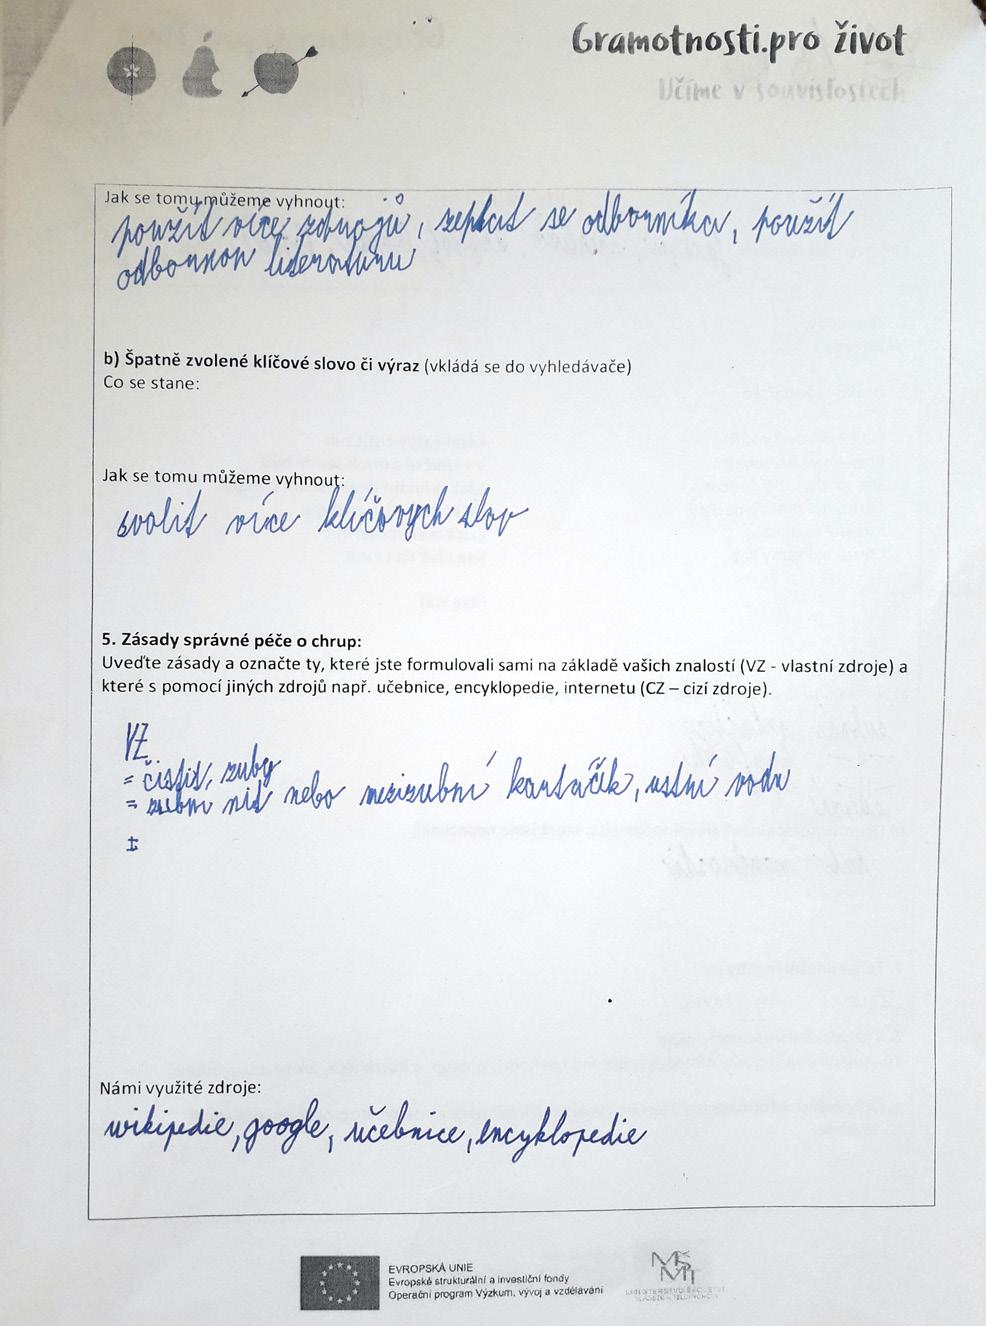 Gramotnosti.pro život
Učíme v souvislostech
Jak se tomu můžeme vyhnout:
použít více zdrojů, zeptat se odborníka, použít
odbornou literaturu
b) Špatně zvolené klíčové slovo či výraz (vkládá se do vyhledávače)
Co se stane:
Jak se tomu můžeme vyhnout:
zvolit více klíčových slov
5. Zásady správné péče o chrup:
Uveďte zásady a označte ty, které jste formulovali sami na základě vašich znalostí (VZ - vlastní zdroje) a
které s pomocí jiných zdrojů např. učebnice, encyklopedie, internetu (CZ – cizí zdroje).
VZ
= čistit, zuby
= zubní nit nebo mezizubní kartáčík, ustní vodu
Námi využité zdroje:
wikipedie, google, učebnice, encyklopedie
EVROPSKÁ UNIE
Evropské strukturální a investiční fondy
Operační program Výzkum, vývoj a vzdělávání
MŠMT